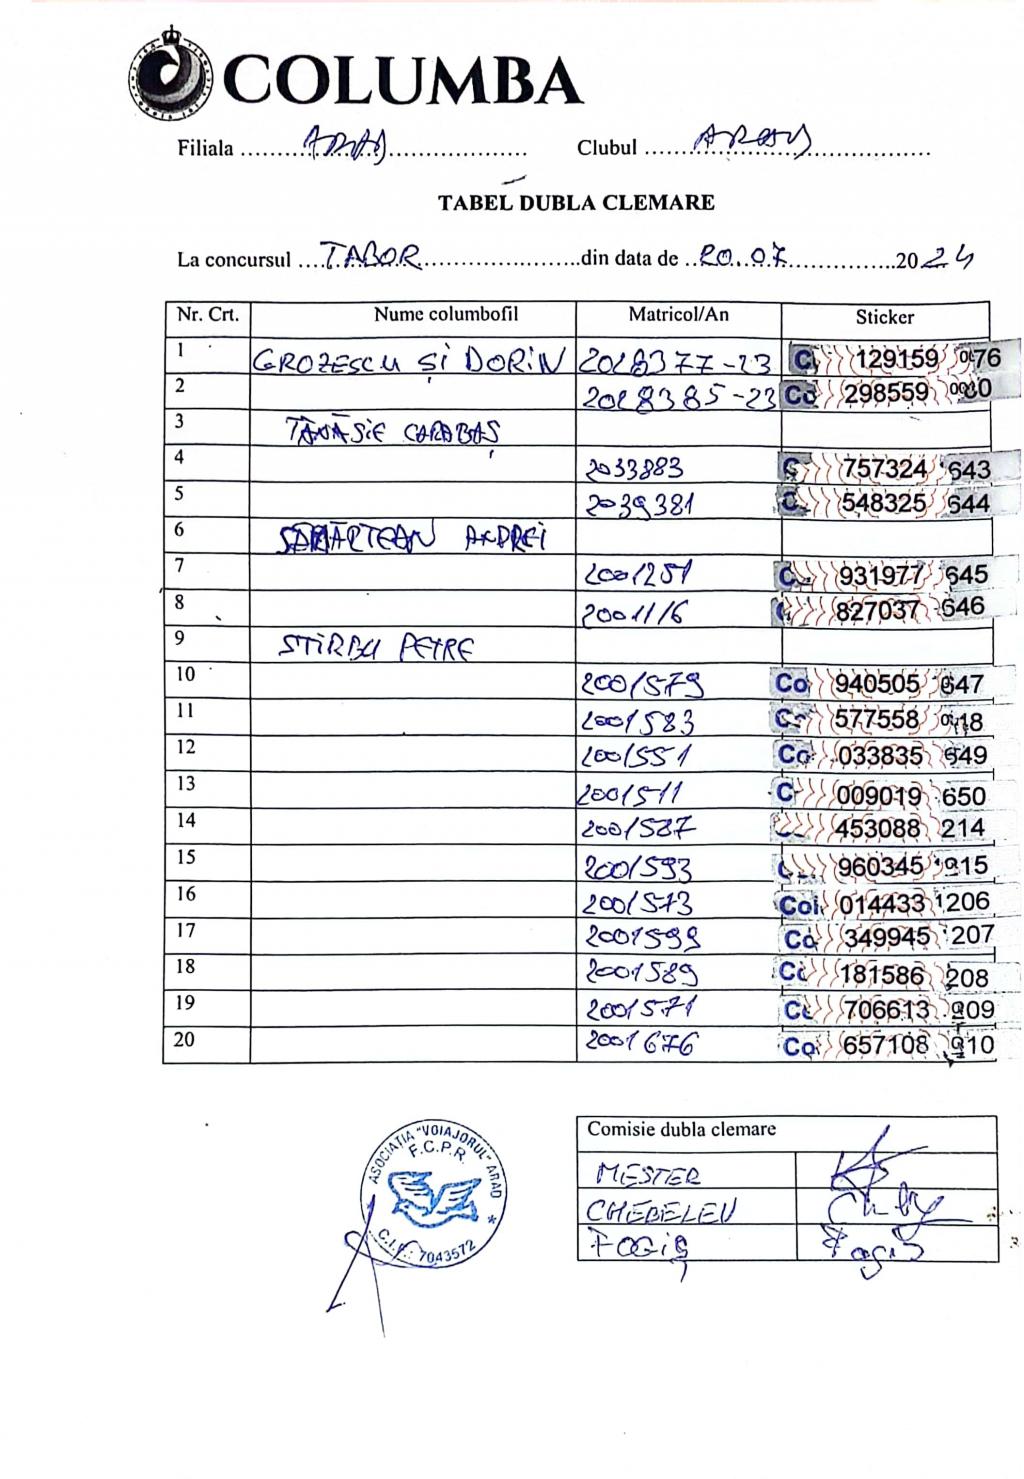 COLUMBA
Filiala ARAD Clubul ARAD
TABEL DUBLA CLEMARE
La concursul TABOR din data de 20.07 2024
Nr. Crt. Nume columbofil Matricol/An Sticker
1 GROZESCU ȘI DORIN 2028377-23 129159 076
2 2028385-23 298559
3 TĂNĂSIE CARABAȘ
4 2033883 757324 643
5 2039381 548325 644
6 ANDREI
7 2001251 931977 645
8 2001116 827037 646
9 STIRBU PETRE
10 2001579 Co 940505 647
11 2001583 577558
12 2001551 Co 033835 649
13 2001511 C 009019 650
14 2001587 453088 214
15 2001593 960345 215
16 2001573 014433 206
17 2001599 349945 207
18 2001589 181586 208
19 2001571 706613 209
20 2001676 657108 210
ASOCIATIA "VOIAJORUL" ARAD
F.C.P.R.
C.I.F.: 7043572
Comisie dubla clemare
MESTER
CHEBELEU
FOGIȘ